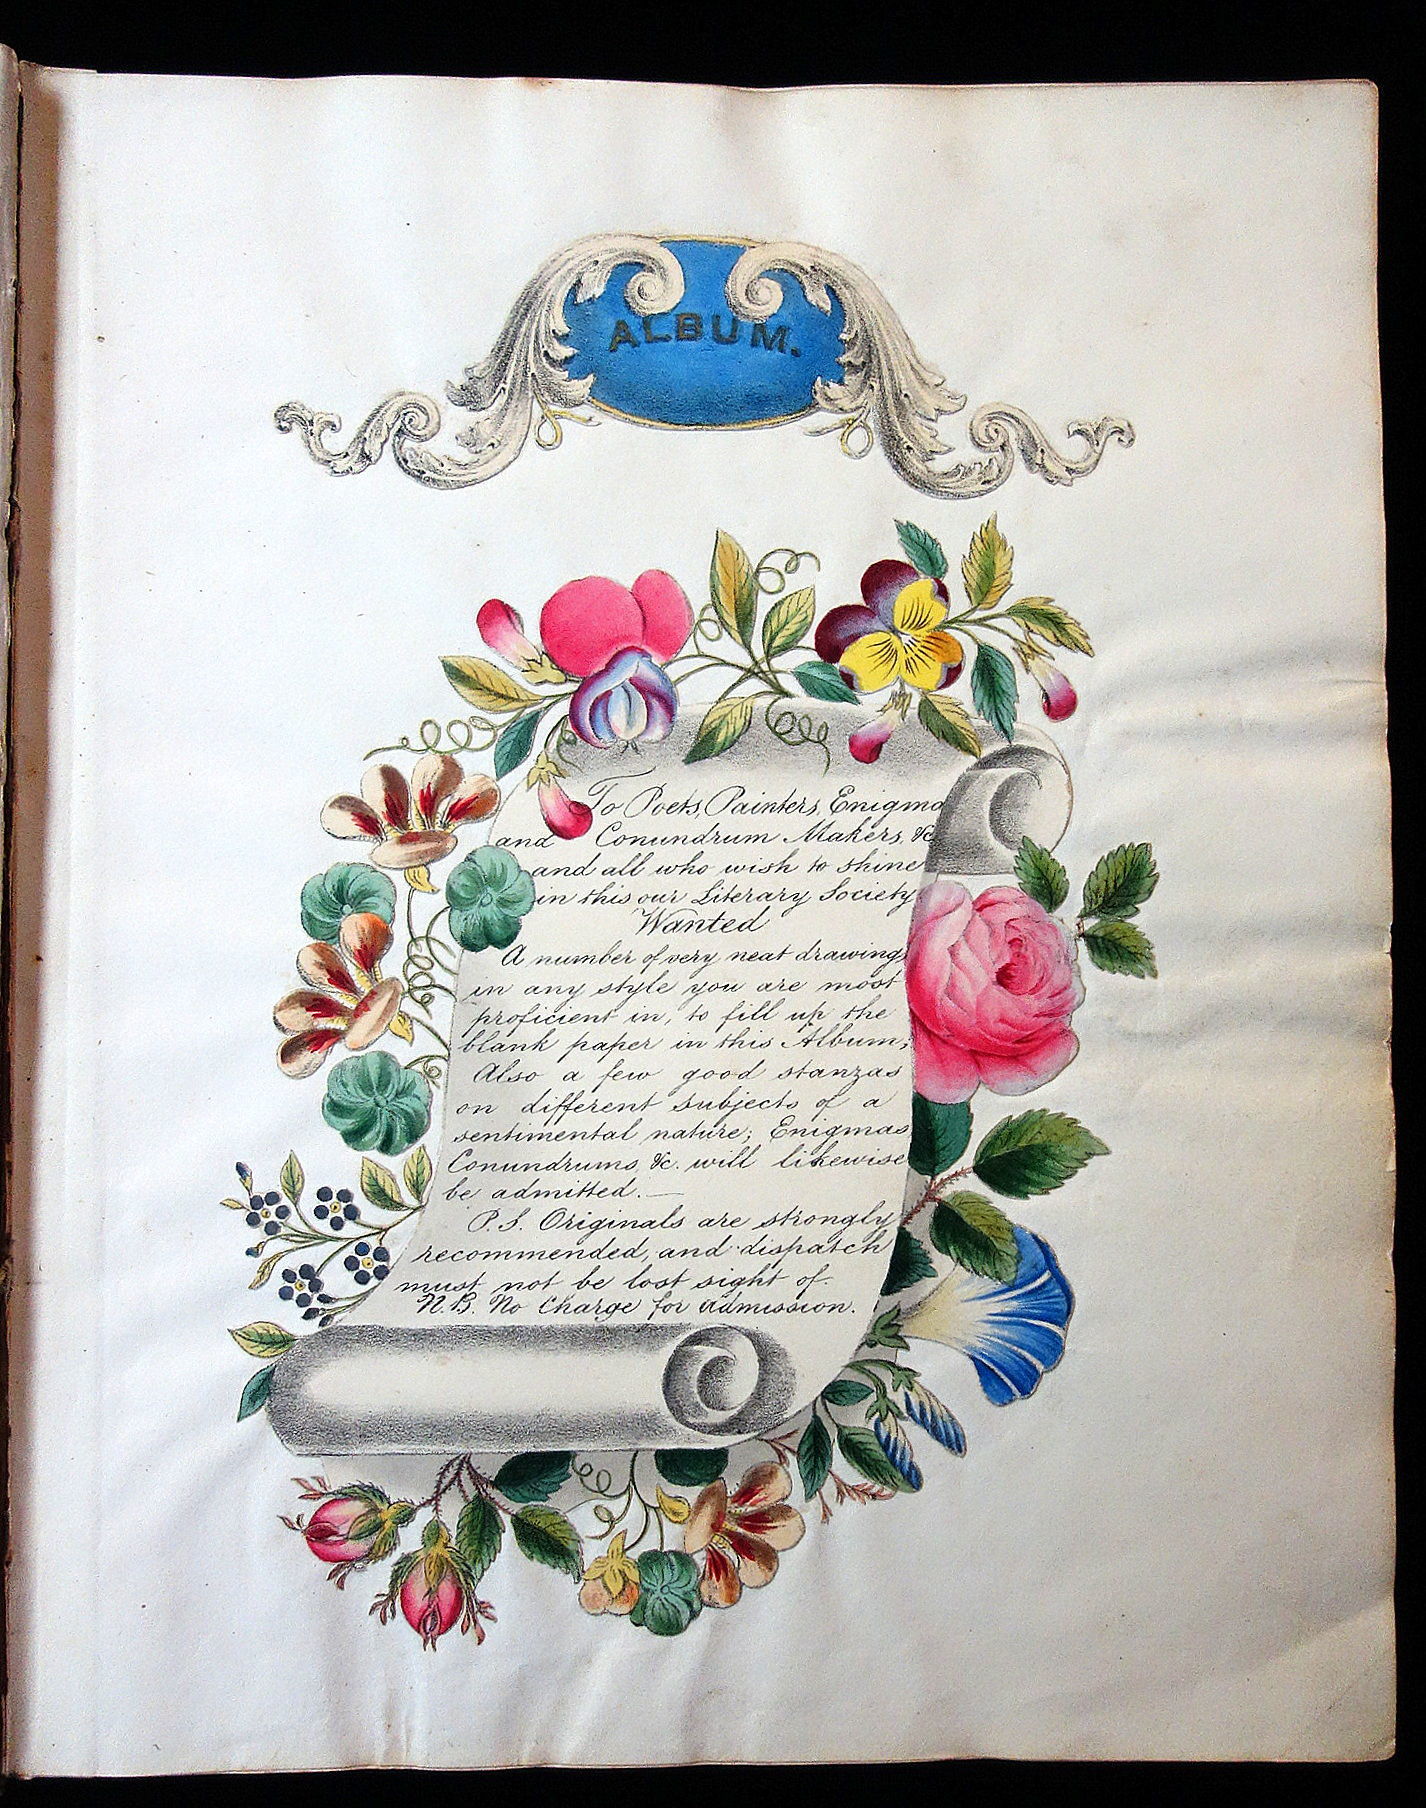 ALBUM.
To Poets, Painters, Enigma
and Conundrum Makers, &c
and all who wish to shine
in this our Literary Society
Wanted
A number of very neat drawings
in any style you are most
proficient in, to fill up the
blank paper in this Album;
Also a few good stanzas
on different subjects of a
sentimental nature; Enigmas
Conundrums, &c. will likewise
be admitted. —
P.S. Originals are strongly
recommended, and dispatch
must not be lost sight of.
N.B. No Charge for admission.